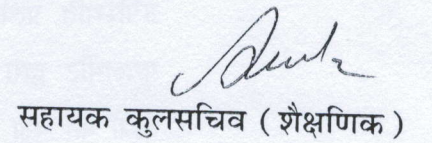 सहायक कुलसचिव ( शैक्षणिक )